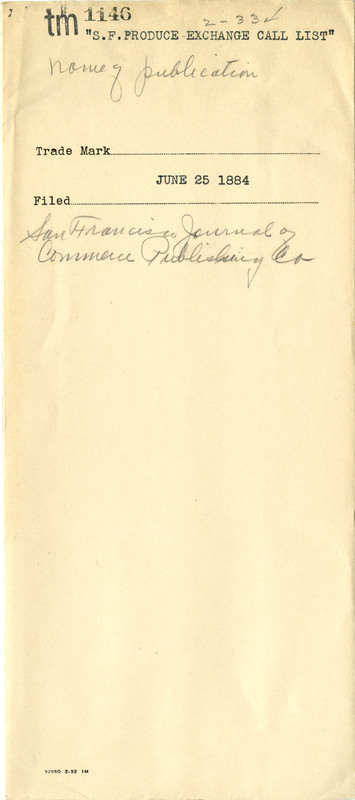 tm 1146
2-334
"S.F.PRODUCE EXCHANGE CALL LIST"
Name of publication
Trade Mark
JUNE 25 1884
Filed
San Francisco Journal of
Commerce Publishing Co
92650 2-32 1M